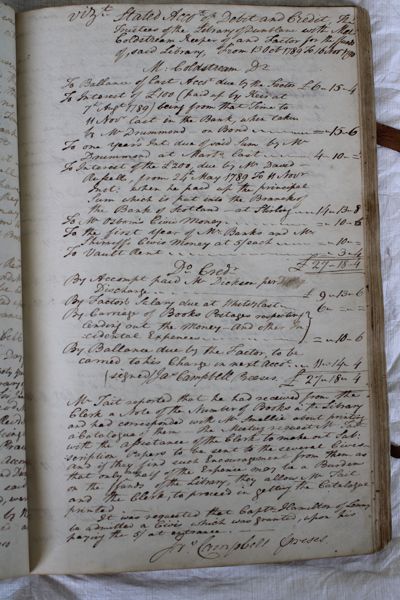 vizt. Stated Accot. of Debt and Credit, The
Trustees of the Library of Dunblane with Mr.
Coldstream Keeper of and Factor on the funds
of said Library, from 13 Octr 1789 To 16 Novr 1790
Mr. Coldstream Dr.
To Ballance of last Accot. due by the Factor £ 6 - 15 - 4
To Interest of £100 (paid up by
7th Augt. 1789) being from that time to
11 Novr. last in the Bank, when taken
by Mr Drummond on Bond = - 15 - 6
To one years Int. due of said Sum by Mr
Drummond at Marts. last 4 - 10 - =
To Interest of the £200 due by Mr David
Russell from 24th May 1789 To 11 Novr.
Incl. when he paid up the principal
Sum which is put into the Branch of
the Bank of Scotland at Stirling 14 - 13 - 8
To Mr Osburn's Civis Money = - 10 - 6
To the first Year of Mr Banks and Mr
Civis Money at 5/ each = - 10 - =
To Vault Rent = - 3 - 4
£ 27 - 18 - 4
Do. Credr.
By Accompt paid Mr Dickson per
Discharge £ 9 - 13 - 6
By Factors Salary due at last 6 - = - =
By Carriage of Books Postages
lending out the Money and other In
cidental Expences = - 10 - 6
By Ballance due by the Factor, to be
carried to his Charge in next Accot. 11 - 14 - 4
(signed) Jas. Campbell Preses. £ 27 - 18 - 4
Mr Tait reported that he had received from the
Clerk a Note of the Number of Books in the Library
and had corresponded with Mr Smellie about printing
a Catalogue of them. The Meeting request Mr Tait
with the Assistance of the Clerk to make out Sub:
scription Papers to be sent to the several Cives
and if they find such Encouragement from them as
that only of the Expence may be a Burden
on the funds of the Library, they allow Mr Tait
and the Clerk, to proceed in getting the Catalogue
printed
It was requested that Captn. Hamilton of
be admitted a Civis which was granted, upon his
paying the 5/ at entrance.
Jas. Campbell Preses.